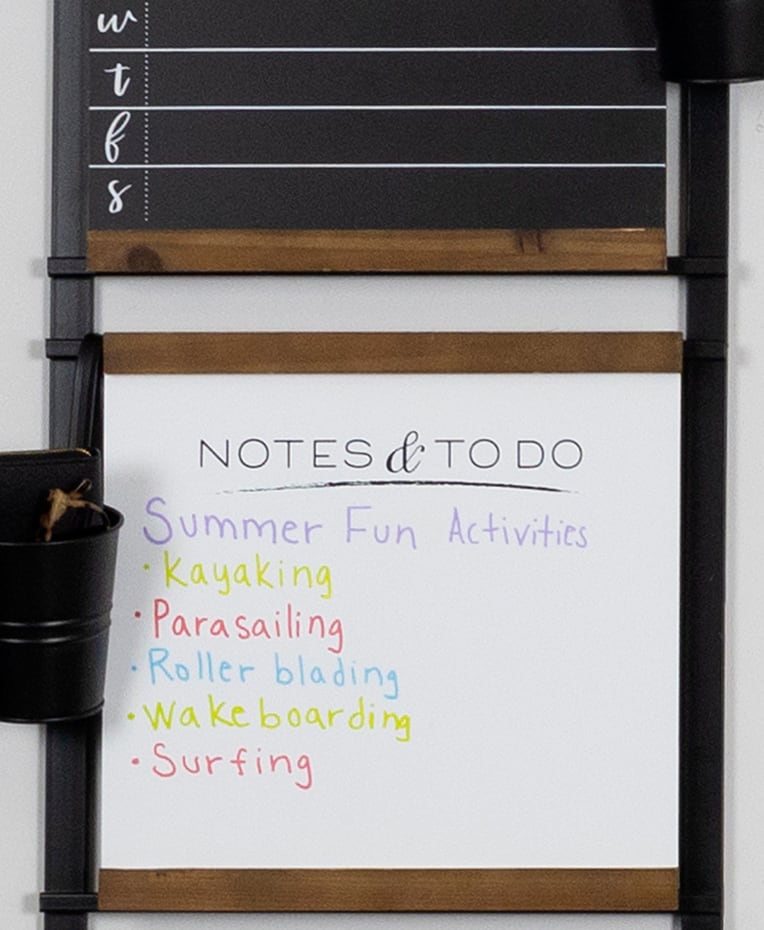 w
t
f
s
NOTES & TO DO
Summer Fun Activities
• Kayaking
• Parasailing
• Roller blading
• Wakeboarding
• Surfing